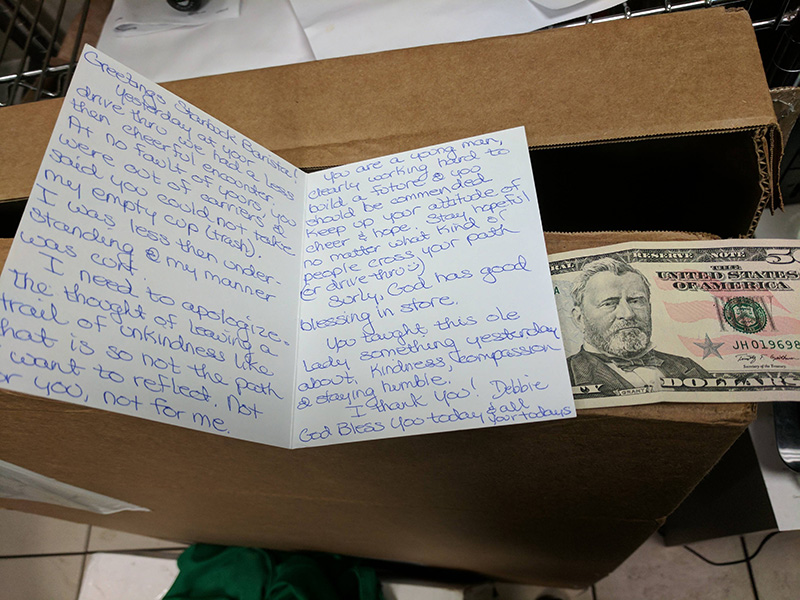 Greetings Starbuck Barista!
Yesterday at your
drive thru we had a less
then cheerful encounter.
At no fault of yours you
were out of carriers &
said you could not take
my empty cup (trash).
I was less then under-
standing & my manner
was curt.
I need to apologize-
The thought of leaving a
trail of unkindness like
that is so not the path
I want to reflect. Not
for you, not for me.
You are a young man,
clearly working hard to
build a future & you
should be commended
Keep up your attitude of
cheer & hope. Stay hopeful
no matter what kind of
people cross your path
(or drive-thru :)
Surly, God has good
blessing in store.
You taught this ole
Lady something yesterday
about, kindness, compassion
& staying humble.
I thank you! Debbie
God Bless you today & all
your todays
RAL RESERVE NOTE
5
THE
UNITED STATES
OF AMERICA
JH 019698
Secretary of the Treasury
GRANT
DOLLARS